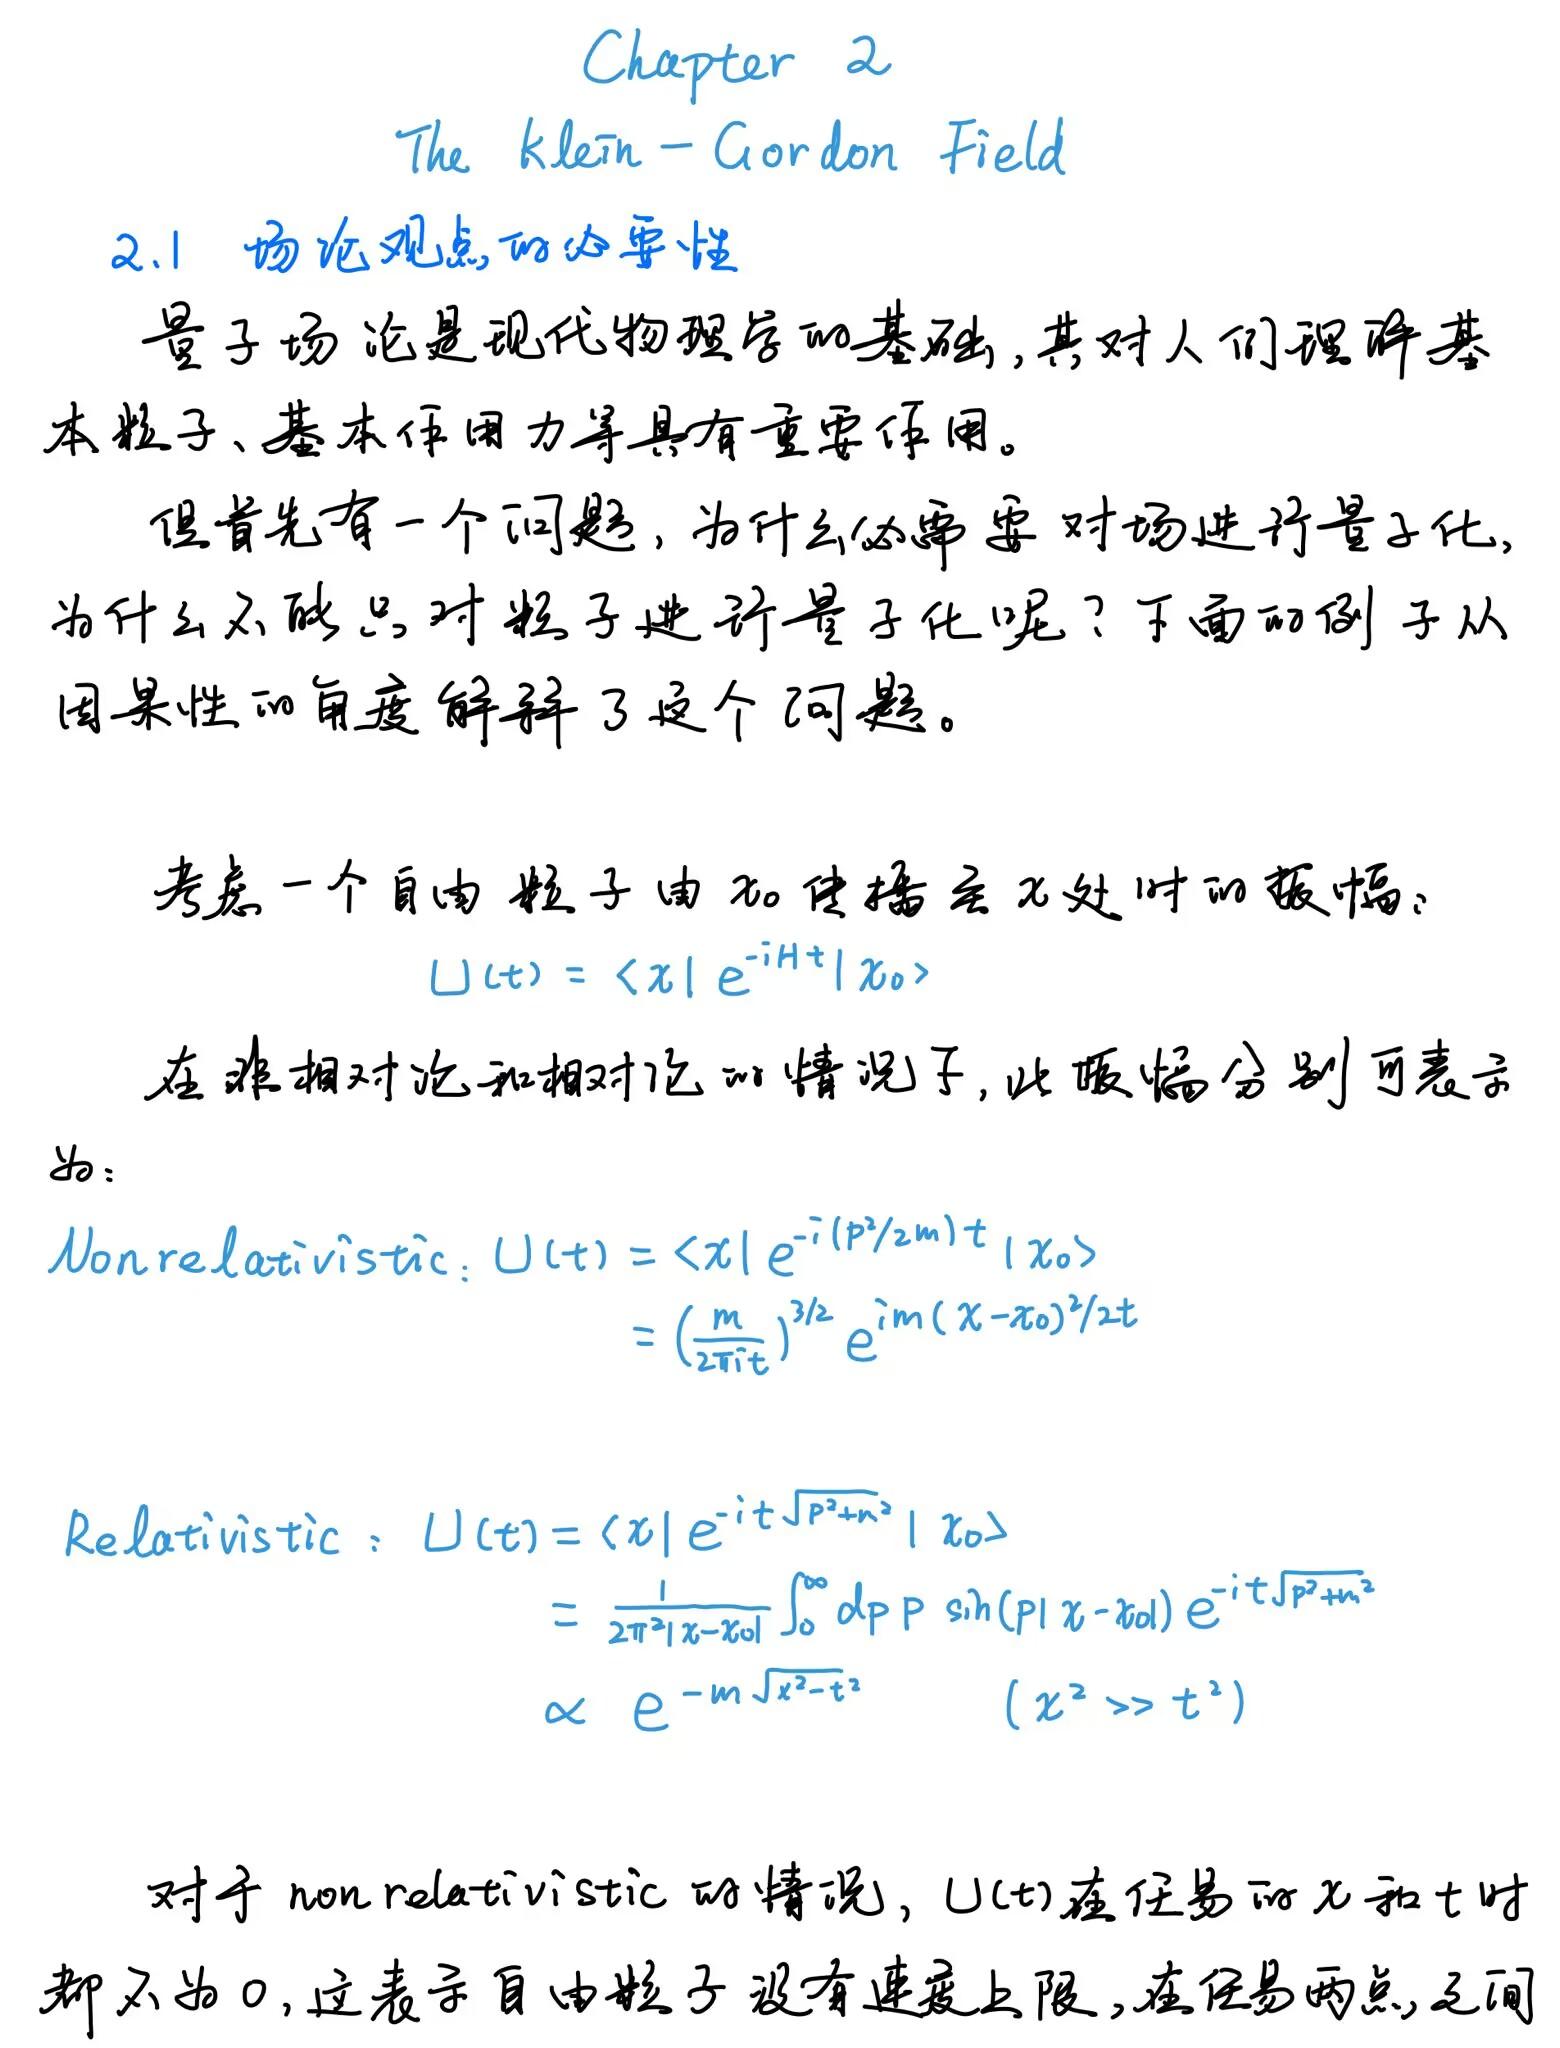 Chapter 2
The Klein-Gordon Field
2.1 场论观点的必要性
量子场论是现代物理学的基础,其对人们理解基
本粒子、基本作用力等具有重要作用。
但首先有一个问题,为什么必需要对场进行量子化,
为什么不能只对粒子进行量子化呢?下面的例子从
因果性的角度解释了这个问题。
考虑一个自由粒子由x₀传播至x处时的振幅:
U(t) = <x| e^{-iHt} |x₀>
在非相对论和相对论的情况下,此振幅分别可表示
为:
Nonrelativistic: U(t) = <x| e^{-i(p²/2m)t} |x₀>
= (m/2πit)^{3/2} e^{im(x-x₀)²/2t}
Relativistic: U(t) = <x| e^{-it√(p²+m²)} |x₀>
= 1/(2π²|x-x₀|) ∫₀^∞ dp p sin(p|x-x₀|) e^{-it√(p²+m²)}
∝ e^{-m√(x²-t²)} (x² >> t²)
对于nonrelativistic的情况, U(t)在任易的x和t时
都不为0,这表示自由粒子没有速度上限,在任易两点之间